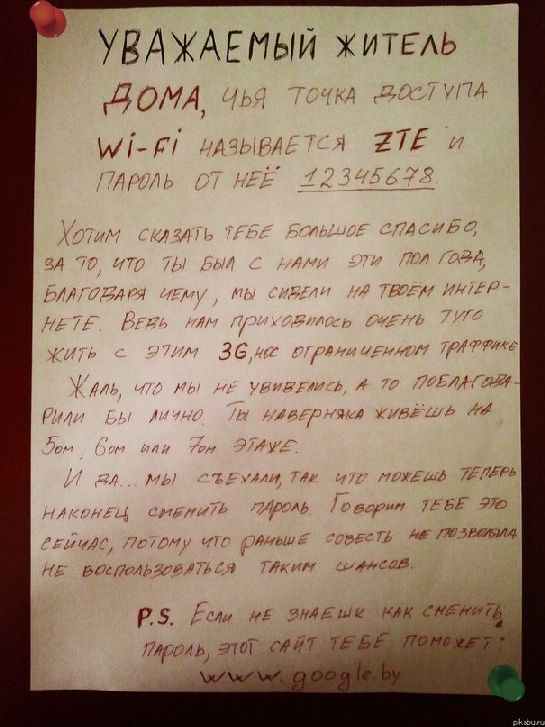 УВАЖАЕМЫЙ ЖИТЕЛЬ
ДОМА, ЧЬЯ ТОЧКА ДОСТУПА
Wi-Fi НАЗЫВАЕТСЯ ZTE И
ПАРОЛЬ ОТ НЕЁ 12345678
ХОТИМ СКАЗАТЬ ТЕБЕ БОЛЬШОЕ СПАСИБО,
ЗА ТО, ЧТО ТЫ БЫЛ С НАМИ ЭТИ ПОЛ ГОДА,
БЛАГОДАРЯ ЧЕМУ, МЫ СИДЕЛИ НА ТВОЕМ ИНТЕР-
НЕТЕ. ВЕДЬ НАМ ПРИХОДИЛОСЬ ОЧЕНЬ ТУГО
ЖИТЬ С ЭТИМ 3G, ОГРАНИЧЕННОМ ТРАФФИКЕ
ЖАЛЬ, ЧТО МЫ НЕ УВИДЕЛИСЬ, А ТО ПОБЛАГОДА-
РИЛИ БЫ ЛИЧНО. ТЫ НАВЕРНЯКА ЖИВЁШЬ НА
5ом, 6ом ИЛИ 7ом ЭТАЖЕ.
И ДА... МЫ СЪЕХАЛИ, ТАК ЧТО МОЖЕШЬ ТЕПЕРЬ
НАКОНЕЦ СМЕНИТЬ ПАРОЛЬ. ГОВОРИМ ТЕБЕ ЭТО
СЕЙЧАС, ПОТОМУ ЧТО РАНЬШЕ СОВЕСТЬ НЕ ПОЗВОЛИЛА
НЕ ВОСПОЛЬЗОВАТЬСЯ ТАКИМ ШАНСОМ.
P.S. ЕСЛИ НЕ ЗНАЕШЬ КАК СМЕНИТЬ
ПАРОЛЬ, ЭТОТ САЙТ ТЕБЕ ПОМОЖЕТ:
www.google.by
pikabu.ru